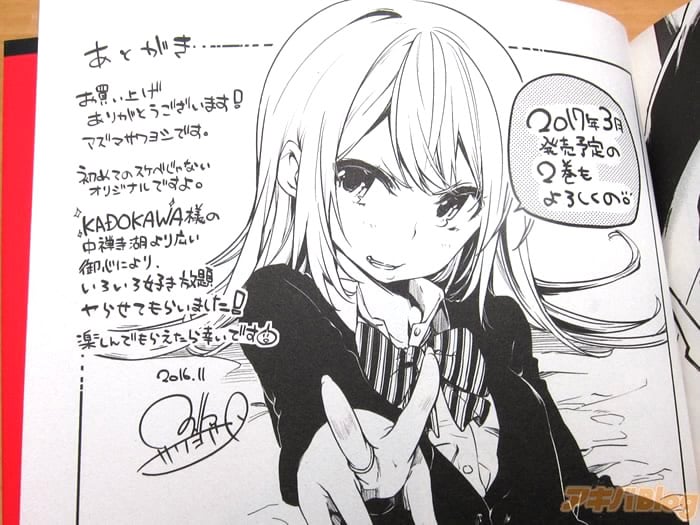 あとがき
お買い上げ
ありがとうございます!
アズマサワヨシです。
初めてのスケベじゃない
オリジナルですよ。
KADOKAWA様の
中禅寺湖より広い
御心により、
いろいろ好き放題
ヤらせてもらいました!
楽しんでもらえたら幸いです
2016.11
2017年3月
発売予定の
2巻も
よろしくの
アキバBlog